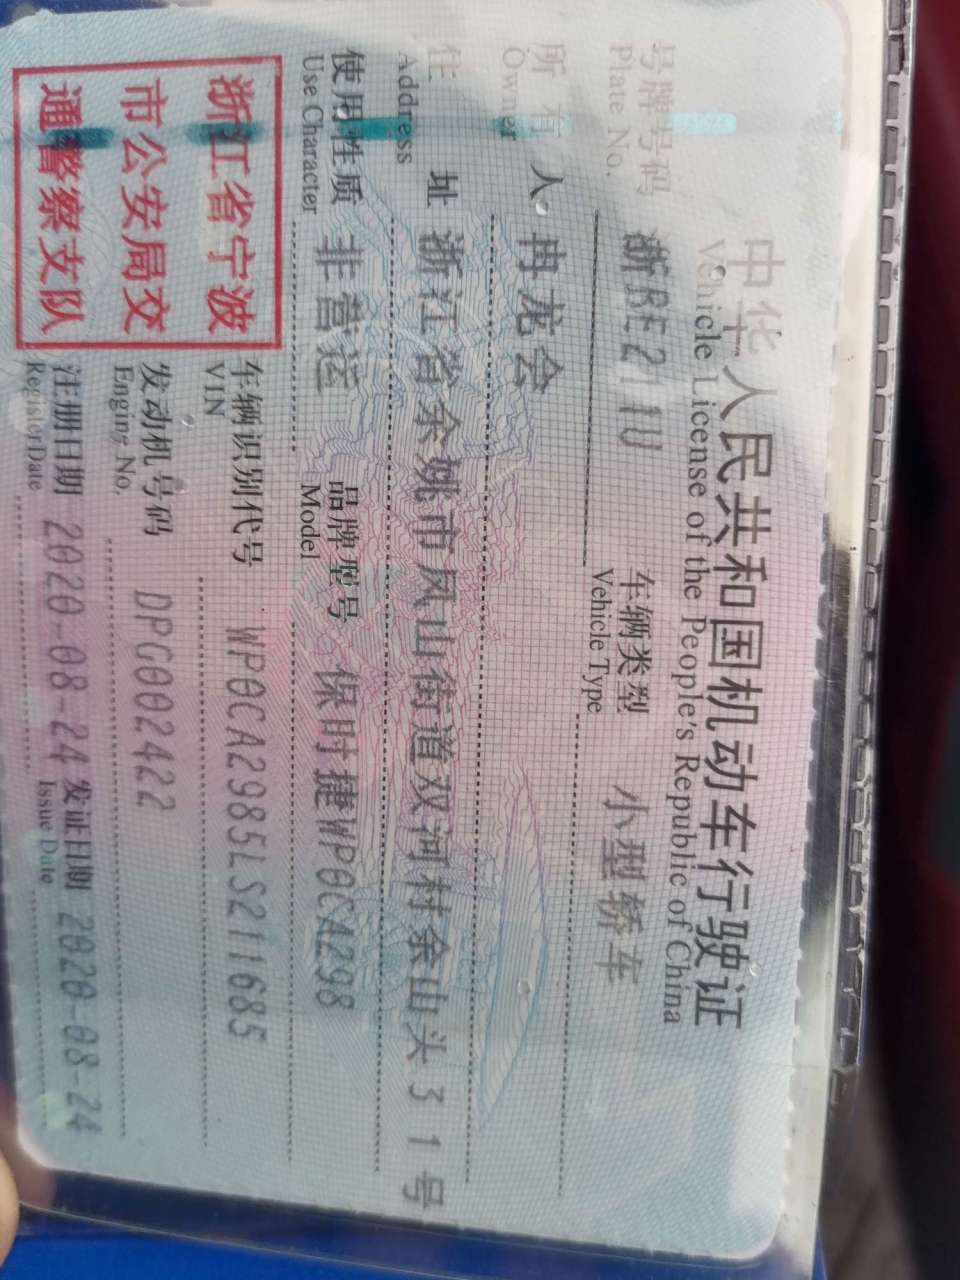 中华人民共和国机动车行驶证
Vehicle License of the People's Republic of China
号牌号码 浙BE211U 车辆类型 小型轿车
Plate No. Vehicle Type
所有人 冉龙会
Owner
住址 浙江省余姚市凤山街道双河村余山头31号
Address
使用性质 非营运 品牌型号 保时捷WP0CA298
Use Character Model
浙江省宁波
市公安局交
通警察支队
车辆识别代号 WP0CA2985LS211685
VIN
发动机号码 DPG002422
Engine No.
注册日期 2020-08-24 发证日期 2020-08-24
RegisterDate Issue Date